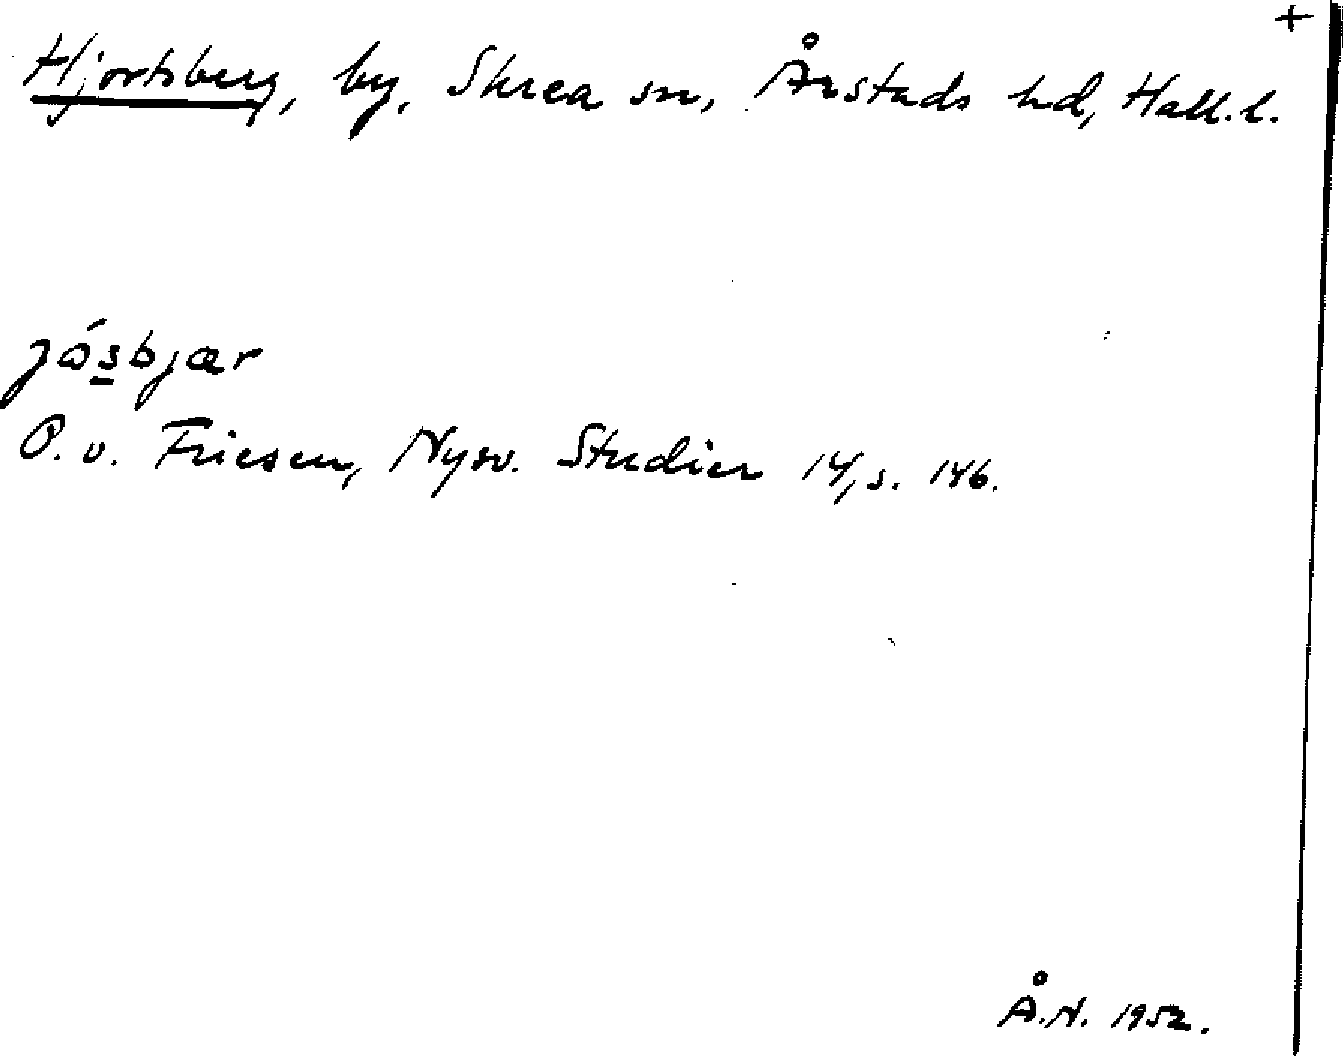 +
Hjortsberg, by, Skrea sn, Årstads hd, Hall. l.
jǿsbjær
O. v. Friesen, Nysv. Studier 14, s. 146.
Å.N. 1952.